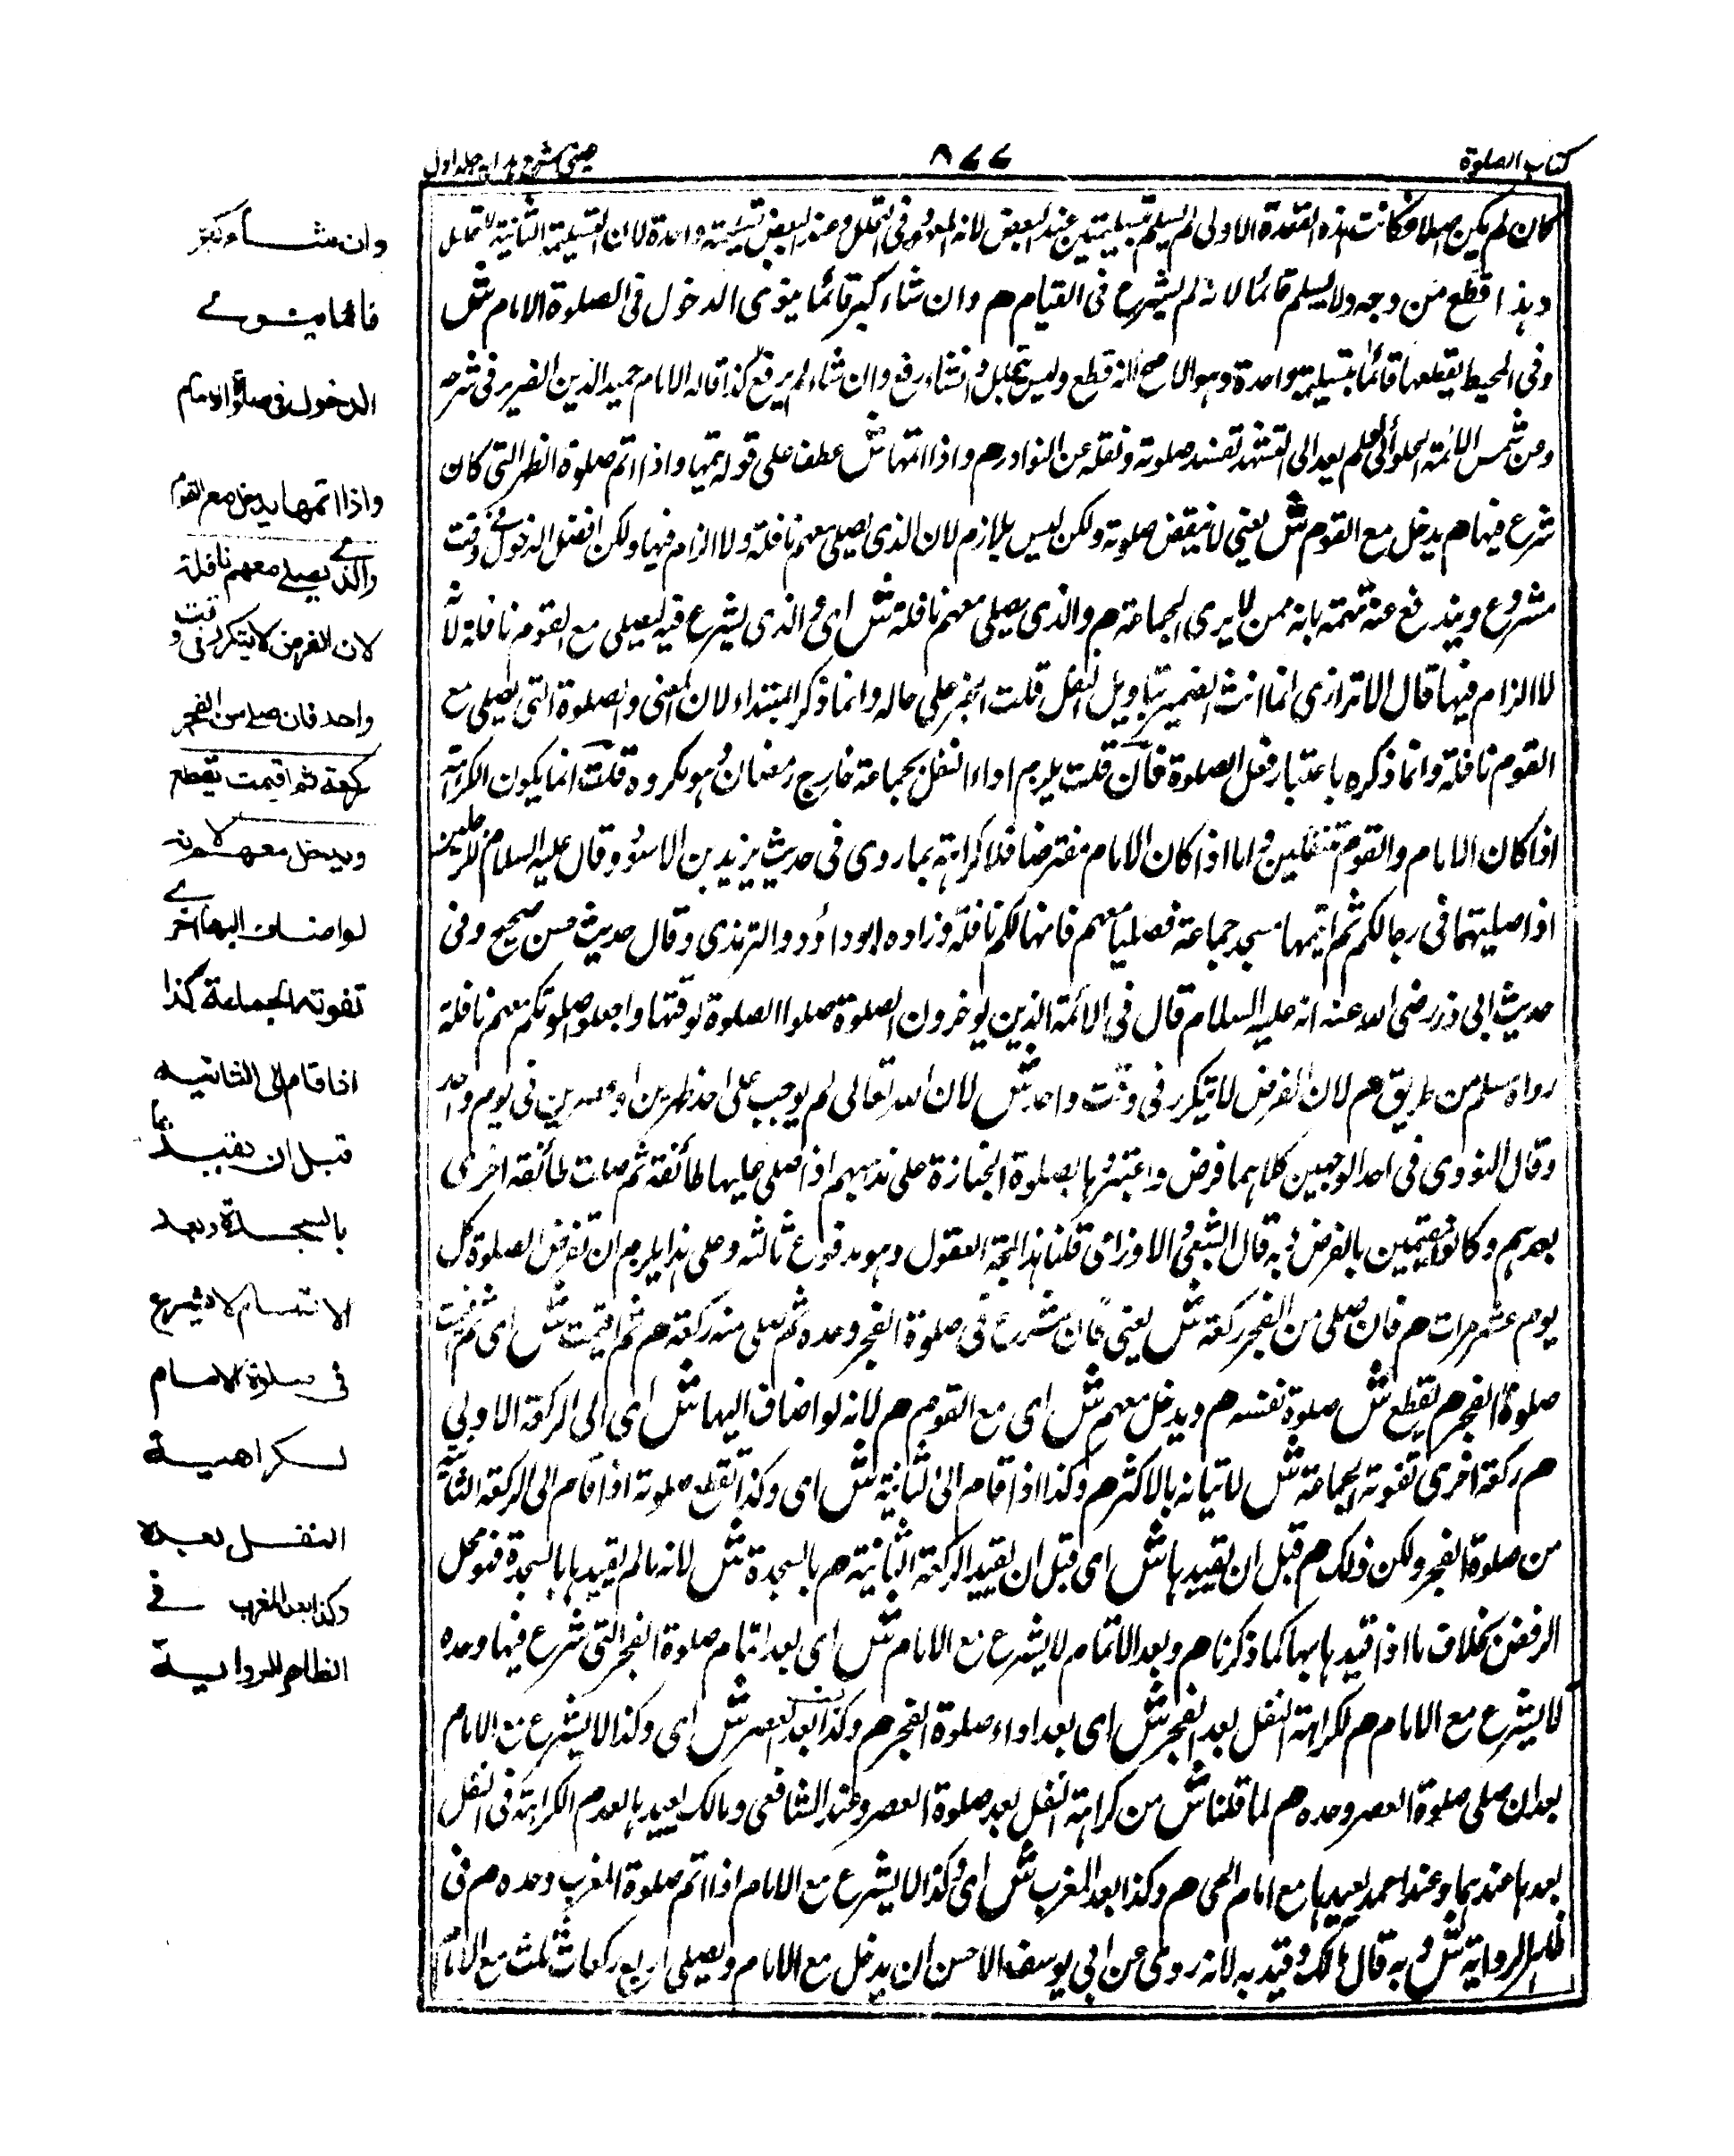 كتاب الصلوة
٨٧٧
عينى شرح هدايه جلد اول
كان لم يكن اصلا فكانت هذه القعدة الاولى ثم يسلم تسليمتين عند البعض لانه المعهود فى التحلل وعند البعض تسليمة واحدة لان التسليمة الثانية للتحلل
وهذا قطع من وجه ولا يسلم قائما لانه لم يشرع فى القيام هم وان شاء كبر قائما ينوى الدخول فى الصلوة الامام ش
وفى المحيط يقطعها قائما بتسليمة واحدة وهو الاصح لانه قطع وليس بتحلل وان شاء رفع وان شاء لم يرفع كذا قاله الامام حميد الدين الضرير فى شرحه
وعن شمس الائمة الحلوائى لم يعد الى التشهد تفسد صلوته ونقله عن النوادر هم واذا اتمها ش عطف على قوله يتمها واذا اتم صلوة الظهر التى كان
شرع فيها هم يدخل مع القوم ش يعنى لا ينقض صلوته ولكن ليس بلازم لان الذى يصلى معهم نافلة ولا الزام فيها ولكن افضل الدخول فى وقت
مشروع ويندفع عنه تهمته بانه ممن لا يرى الجماعة هم والذى يصلى معهم نافلة ش اى والذى يشرع فيه ليصلى مع القوم نافلة لانه
لا الزام فيها قال الاترازى انما انث الضمير بتاويل النفل قلت الخبر على حاله وانما ذكر المبتداء لان المعنى والصلوة التى يصلى مع
القوم نافلة وانما ذكره باعتبار فعل الصلوة فان قلت يلزم اداء النفل بجماعة خارج رمضان وهو مكروه قلت انما يكون الكراهة
اذا كان الامام والقوم متنفلين واما اذا كان الامام مفترضا فلا كراهة بما روى فى حديث يزيد بن الاسود وقال عليه السلام للرجلين
اذا صليتما فى رحالكم ثم اتيتما مسجد جماعة فصليا معهم فانها لكم نافلة وزاده ابو داؤد والترمذى وقال حديث حسن صحيح وفى
حديث ابى ذر رضى الله عنه انه عليه السلام قال فى الائمة الذين يوخرون الصلوة صلوا الصلوة لوقتها واجعلوا صلوتكم معهم نافلة
رواه مسلم من طريق هم لان الفرض لا يتكرر فى وقت واحد ش لان الله تعالى لم يوجب على احد ظهرين او عصرين فى يوم واحد
وقال النووى فى احد الوجهين كلاهما فرض واعتبرها بصلوة الجنازة على مذهبهم اذا صلى عليها طائفة ثم صلت طائفة اخرى
بعدهم وكانوا مقيمين بالفرض وبه قال الشعبى والاوزاعى قلنا هذا لعقول وهو مدفوع ثالثه وعلى هذا يلزم ان تفرض الصلوة كل
يوم عشر مرات هم فان صلى من الفجر ركعة ش يعنى فان شرع فى صلوة الفجر وحده ثم صلى منه ركعة هم ثم اقيمت ش اى ثم اقيمت
صلوة الفجر هم يقطع ش صلوة نفسه هم ويدخل معهم ش اى مع القوم هم لانه لو اضاف اليها ش اى الى الركعة الاولى
هم ركعة اخرى تفوته الجماعة ش لاتيانه بالاكثر هم وكذا اذا قام الى الثانية ش اى وكذا تقطع صلوته اذا قام الى الركعة الثانية
من صلوة الفجر ولكن ذلك هم قبل ان يقيدها ش اى قبل ان يقيد الركعة الثانية هم بالسجدة ش لانه ما لم يقيدها بالسجدة فهو محل
الرفض بخلاف ما اذا قيدها بها كما ذكرنا هم وبعد الاتمام لا يشرع مع الامام ش اى بعد اتمام صلوة الفجر التى شرع فيها وحده
لا يشرع مع الامام هم لكراهة النفل بعد الفجر ش اى بعد اداء صلوة الفجر هم وكذا بعد العصر ش اى وكذا لا يشرع مع الامام
بعد ان صلى صلوة العصر وحده هم لما قلنا ش من كراهة النفل بعد صلوة العصر وعند الشافعى ومالك يعيدها لعدم الكراهة فى النفل
بعدها عندهما وعند احمد يعيدها مع امام الحى هم وكذا بعد المغرب ش اى وكذا لا يشرع مع الامام اذا اتم صلوة المغرب وحده هم فى
ظاهر الرواية ش وبه قال مالك وقيد به لانه روى عن ابى يوسف الاحسن ان يدخل مع الامام ويصلى اربع ركعات ثلث مع الامام
وان شاء كبر
قائما ينوى
الدخول فى صلوة الامام
واذا اتمها يدخل مع القوم
والذى يصلى معهم نافلة
لان الفرض لا يتكرر فى وقت
واحد فان صلى من الفجر
ركعة ثم اقيمت يقطع
ويدخل معهم لانه
لو اضاف اليها اخرى
تفوته الجماعة كذا
اذا قام الى الثانيه
قبل ان يقيدها
بالسجدة وبعد
الاتمام لا يشرع
فى صلوة الامام
لكراهية
النفل بعده
وكذا بعد المغرب فى
الظاهر الرواية